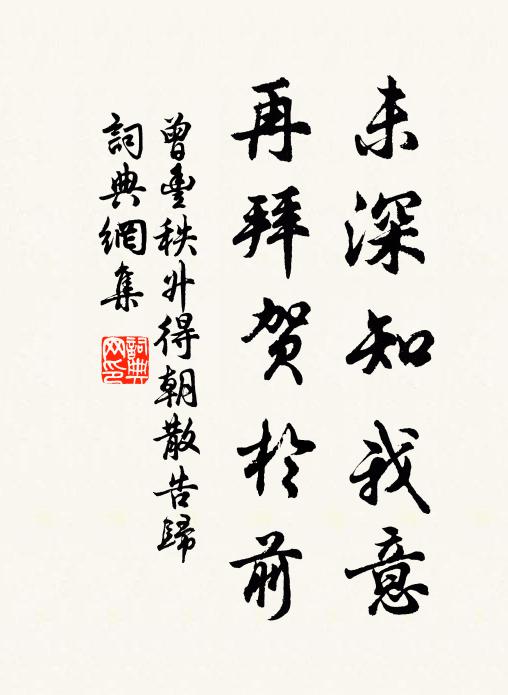 未深知我意
再拜贺於前
曾豊秩外得朝散告歸
詞典網集
詞典網印